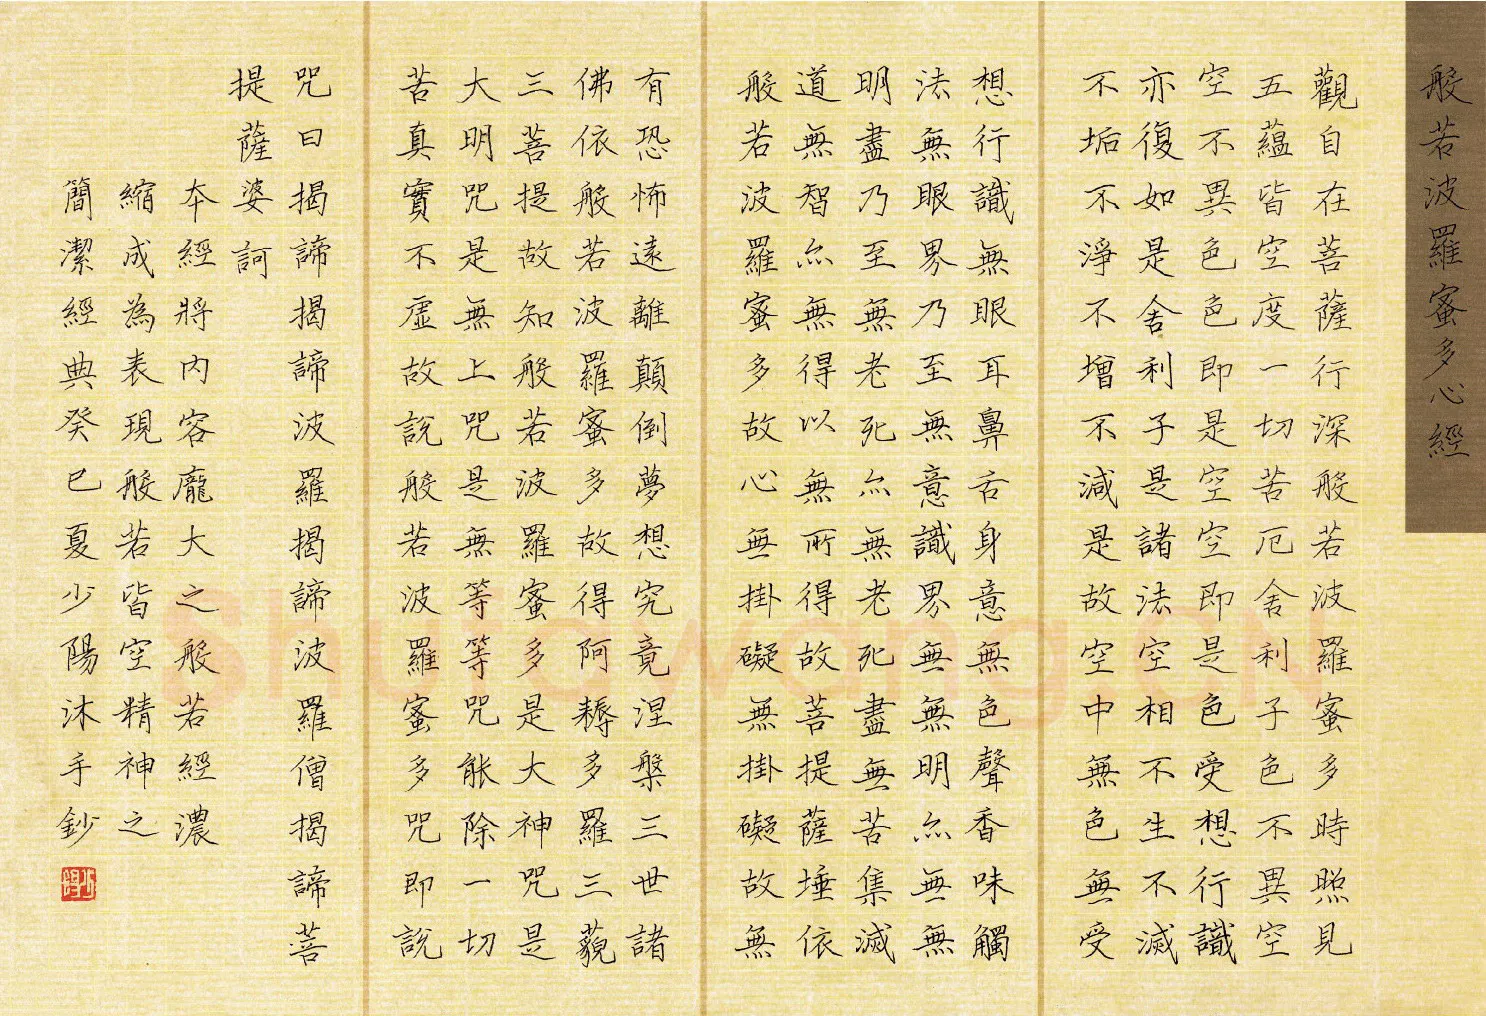 般若波羅蜜多心經
觀自在菩薩行深般若波羅蜜多時照見
五蘊皆空度一切苦厄舍利子色不異空
空不異色色即是空空即是色受想行識
亦復如是舍利子是諸法空相不生不滅
不垢不淨不增不減是故空中無色無受
想行識無眼耳鼻舌身意無色聲香味觸
法無眼界乃至無意識界無無明亦無無
明盡乃至無老死亦無老死盡無苦集滅
道無智亦無得以無所得故菩提薩埵依
般若波羅蜜多故心無掛礙無掛礙故無
有恐怖遠離顛倒夢想究竟涅槃三世諸
佛依般若波羅蜜多故得阿耨多羅三藐
三菩提故知般若波羅蜜多是大神咒是
大明咒是無上咒是無等等咒能除一切
苦真實不虛故說般若波羅蜜多咒即說
咒曰揭諦揭諦波羅揭諦波羅僧揭諦菩
提薩婆訶
本經將內容龐大之般若經濃
縮成為表現般若皆空精神之
簡潔經典癸巳夏少陽沐手鈔
Shufawang.CN